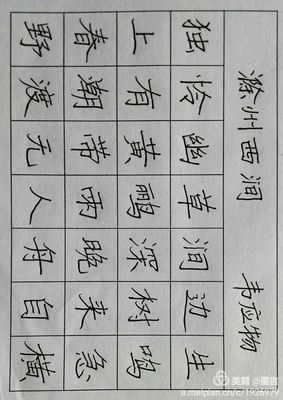 滁州西涧 韦应物
独怜幽草涧边生
上有黄鹂深树鸣
春潮带雨晚来急
野渡无人舟自横
美篇
a.meipian.cn/c/1926979